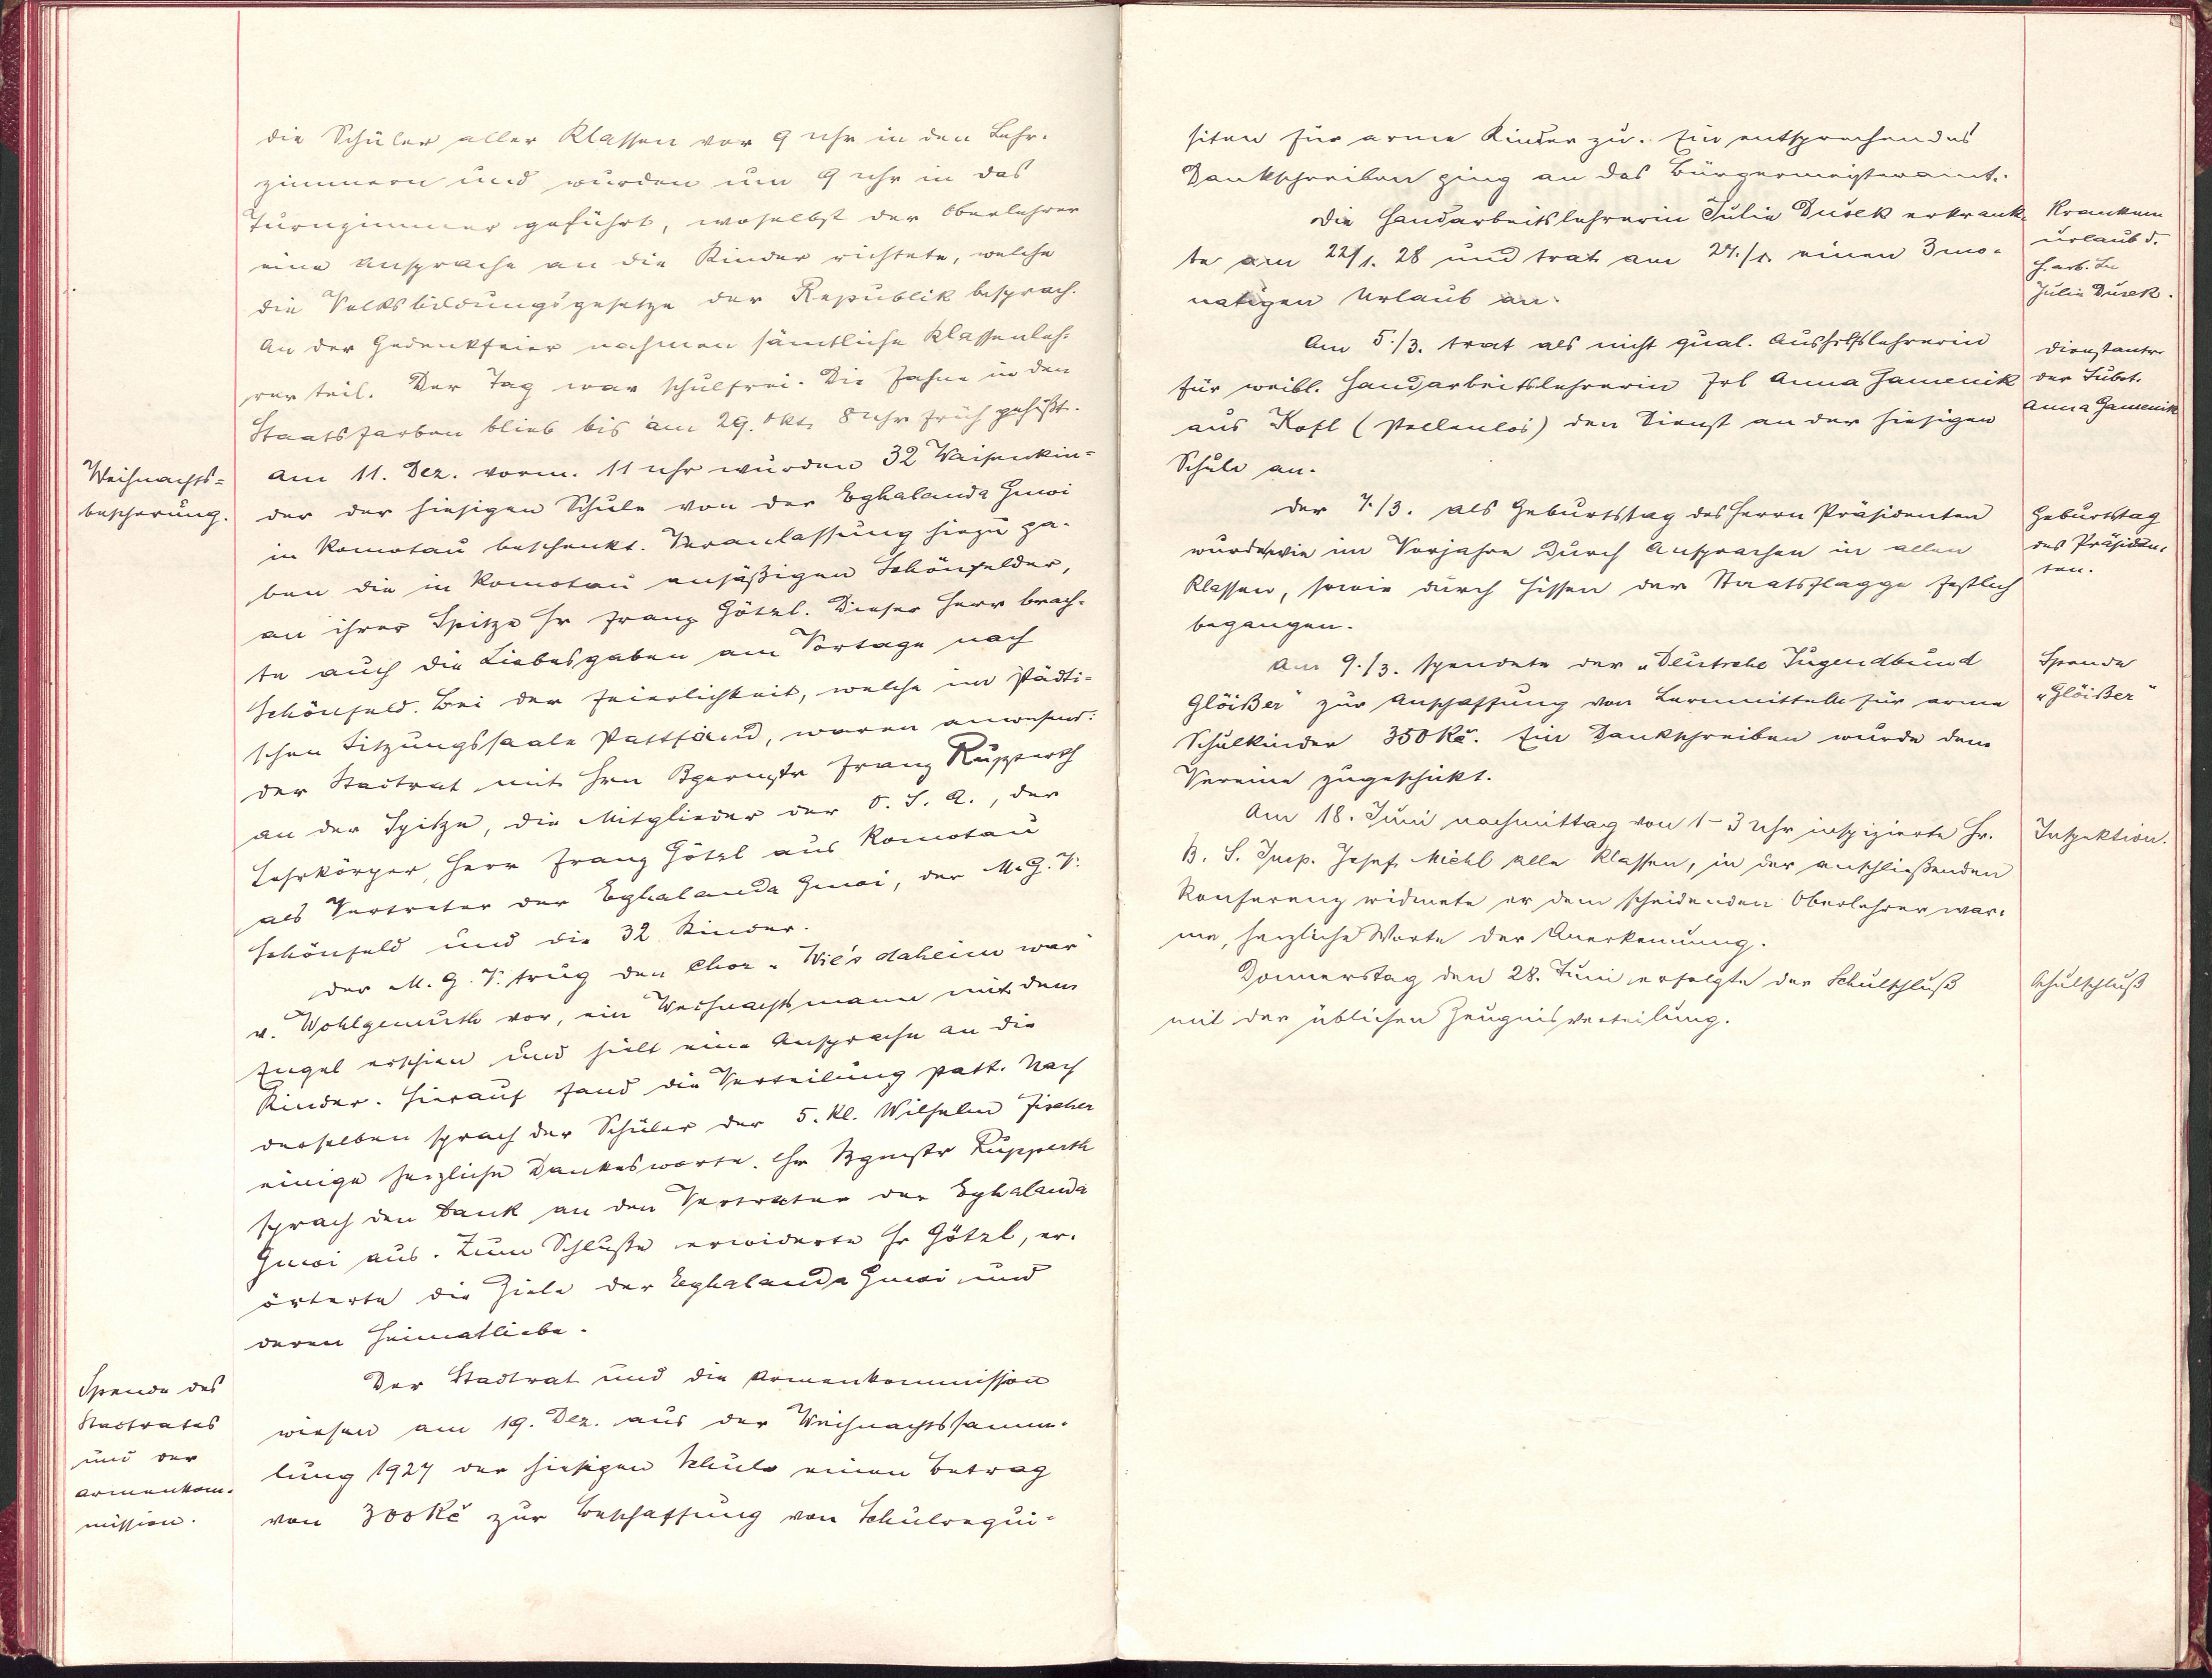 die Schüler aller Klassen vor 9 Uhr in den Lehr-
zimmern und wurden um 9 Uhr in das
Turnzimmer geführt, woselbst der Oberlehrer
eine Ansprache an die Kinder richtete, welche
die Volksbildungsgesetze der Republik besprach.
An der Gedenkfeier nahmen sämtliche Klassenleh-
rer teil. Der Tag war schulfrei. Die Fahne in den
Staatsfarben blieb bis am 29. Okt. 8 Uhr früh gehißt.
Weihnachts=
bescherung.
Am 11. Dez. vorm. 11 Uhr wurden 32 Waisenkin=
der der hiesigen Schule von der Eghalanda Gmoi
in Komotau beschenkt. Veranlassung hiezu ga-
ben die in Komotau ansäßigen Schönfelder,
an ihrer Spitze Hr Franz Götzl. Dieser Herr brach-
te auch die Liebesgaben am Vortage nach
Schönfeld. Bei der Feierlichkeit, welche im städti=
schen Sitzungssaale stattfand, waren anwesend:
der Stadtrat mit Hrn Bgermstr Franz Rupperth
an der Spitze, die Mitglieder der O. S. R., der
Lehrkörper, Herr Franz Götzl aus Komotau
als Vertreter der Eghalanda Gmoi, der M. G. V.
Schönfeld und die 32 Kinder.
Der M. G. V. trug den Chor „Wie's daheim war"
v. Wohlgemuth vor, ein Weihnachtsmann mit dem
Engel erschien und hielt eine Ansprache an die
Kinder. Hierauf fand die Verteilung statt. Nach
derselben sprach der Schüler der 5. Kl. Wilhelm Fischer
einige herzliche Dankesworte. Hr Bgmstr Rupperth
sprach den Dank an den Vertreter der Eghalanda
Gmoi aus. Zum Schlusse erwiderte Hr Götzl, er-
örterte die Ziele der Eghalanda Gmoi und
deren Heimatliebe.
Spende des
Stadtrates
und der
Armenkom-
mission.
Der Stadtrat und die Armenkommission
wiesen am 19. Dez. aus der Weihnachtssamm-
lung 1927 der hiesigen Schule einen Betrag
von 300 Kč zur Beschaffung von Schulrequi-
siten für arme Kinder zu. Ein entsprechendes
Dankschreiben ging an das Bürgermeisteramt.
Die Handarbeitslehrerin Julie Dušek erkrank-
te am 22/1. 28 und trat am 24./1. einen 3mo-
natigen Urlaub an.
Kranken
urlaub d.
H. arb. Le
Julie Dusek.
Am 5./3. trat als nicht qual. Aushilfslehrerin
für weibl. Handarbeitslehrerin Frl Anna Hamenik
aus Kofl (stellenlos) den Dienst an der hiesigen
Schule an.
Dienstantr.
der Subst.
Anna Hamenik
Der 7./3. als Geburtstag des Herrn Präsidenten
wurde wie im Vorjahre durch Ansprachen in allen
Klassen, sowie durch Hissen der Staatsflagge festlich
begangen.
Geburtstag
des Präsiden-
ten.
Am 9./3. spendete der „Deutsche Jugendbund
Glöißer" zur Anschaffung von Lernmitteln für arme
Schulkinder 350 Kč. Ein Dankschreiben wurde dem
Vereine zugeschickt.
Spende
„Glöißer"
Am 18. Juni nachmittag von 1–3 Uhr inspizierte Hr.
B. S. Insp. Josef Michl alle Klassen, in der anschließenden
Konferenz widmete er dem scheidenden Oberlehrer war-
me, herzliche Worte der Anerkennung.
Inspektion.
Donnerstag den 28. Juni erfolgte der Schulschluß
mit der üblichen Zeugnisverteilung.
Schulschluß